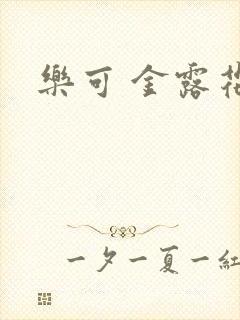 樂可 金露
一夕一夏一紅